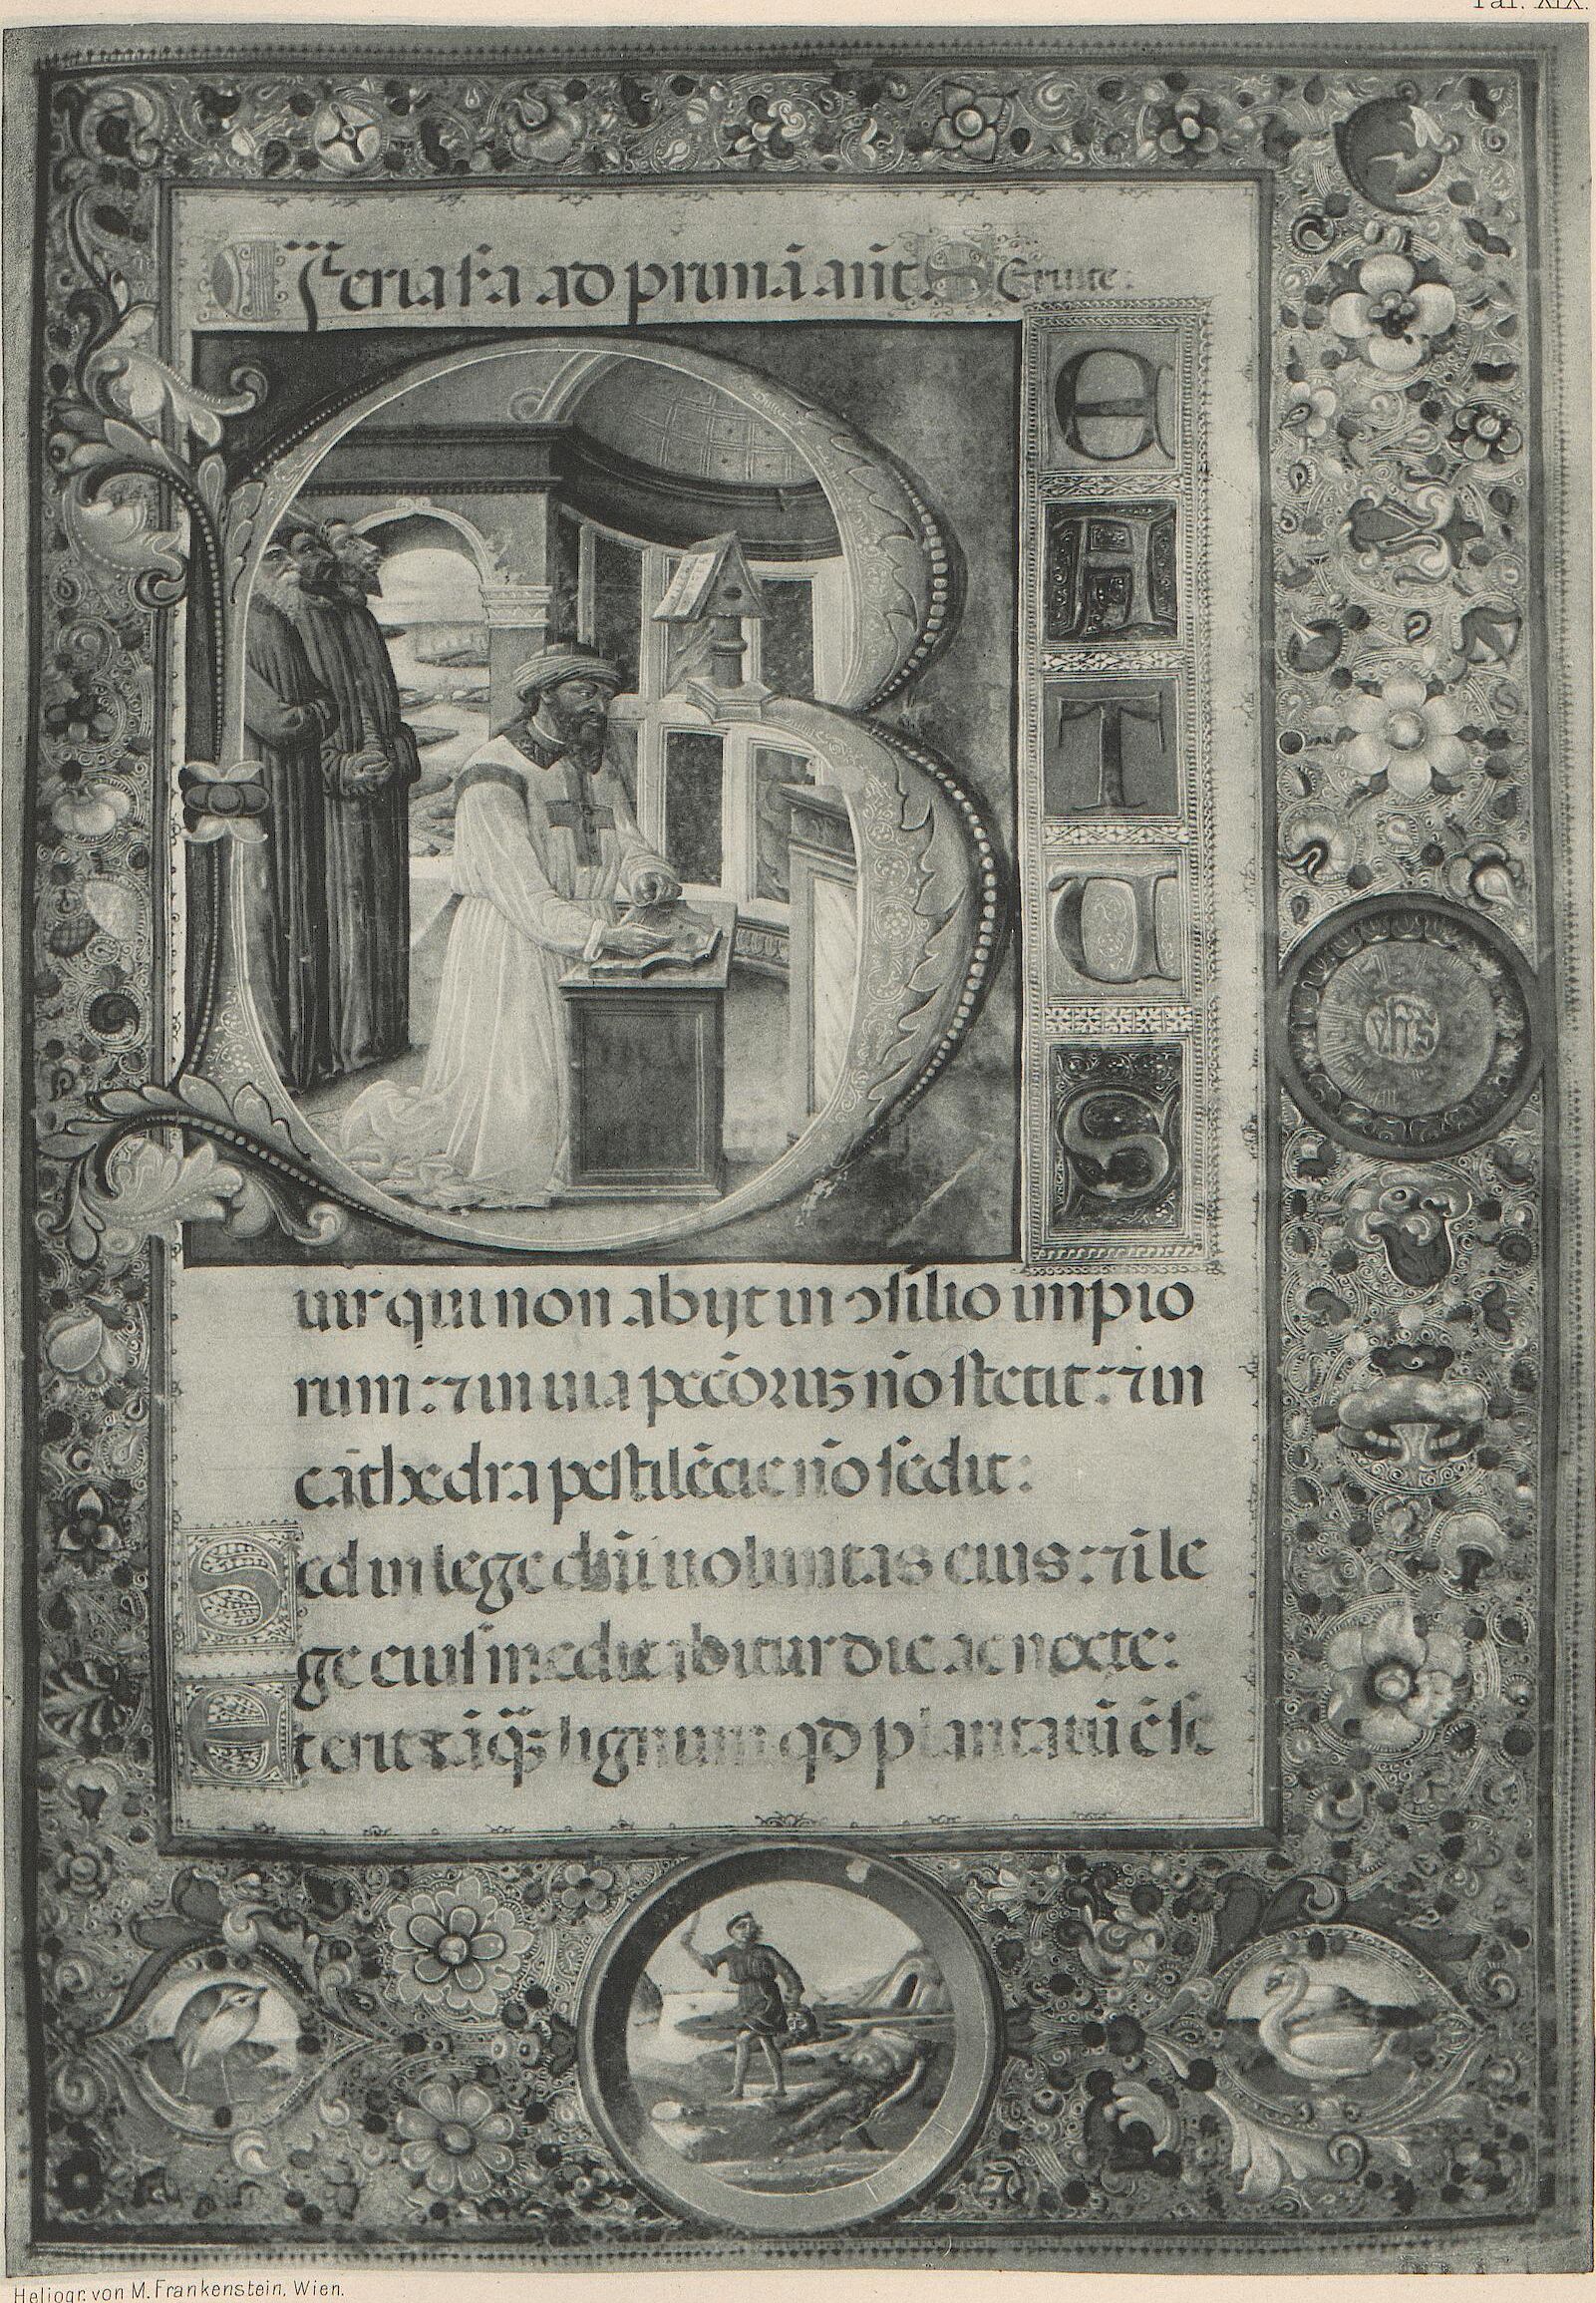 Taf. XIX.
Feria s̄a ad primā añt. Seruite:
B
E
A
T
U
S
uir qui non abijt in ↄsilio impio
rum: ⁊ in uia pcc̄oꝛuꝫ nō stetit: ⁊ in
cāthedra pestilēcie nō sedit:
Sed in lege dn̄i uoluntas eius: ⁊ ī le
ge eius meditabitur die ac nocte:
Et erit tāqꝫ lignum qd plantatū ē se
yhs
Heliogr. von M. Frankenstein, Wien.